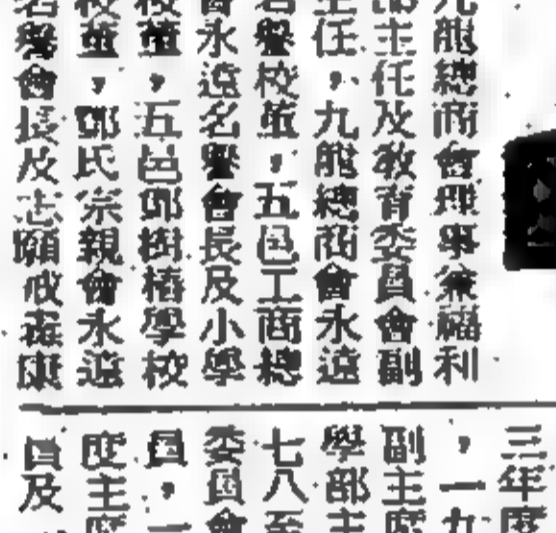 九龍總商會理事兼福利
部主任及教育委員會副
主任，九龍總商會永遠
名譽校董，五邑工商總
會永遠名譽會長及小學
校董，五邑鄧樹椿學校
校董，鄧氏宗親會永遠
名譽會長及志願戒毒康
三年度
，一九
副主席
學部主
七八至
委員會
員，一
度主席
員及